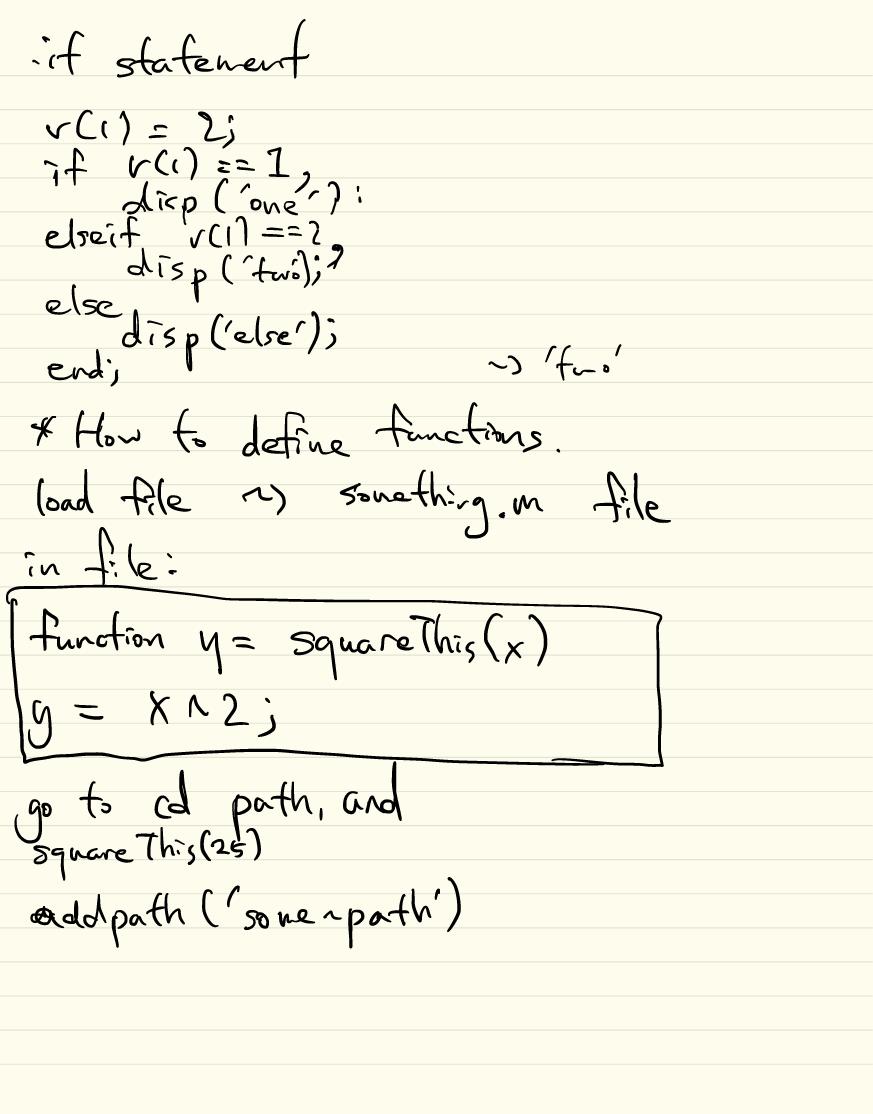 if statement
v(1) = 2;
if v(1) == 1,
disp('one');
elseif v(1) == 2,
disp('two');
else
disp('else');
end;
~> 'two'
* How to define functions.
load file ~> something.m file
in file:
function y = squareThis(x)
y = x^2;
go to cd path, and
squareThis(25)
addpath('some~path')